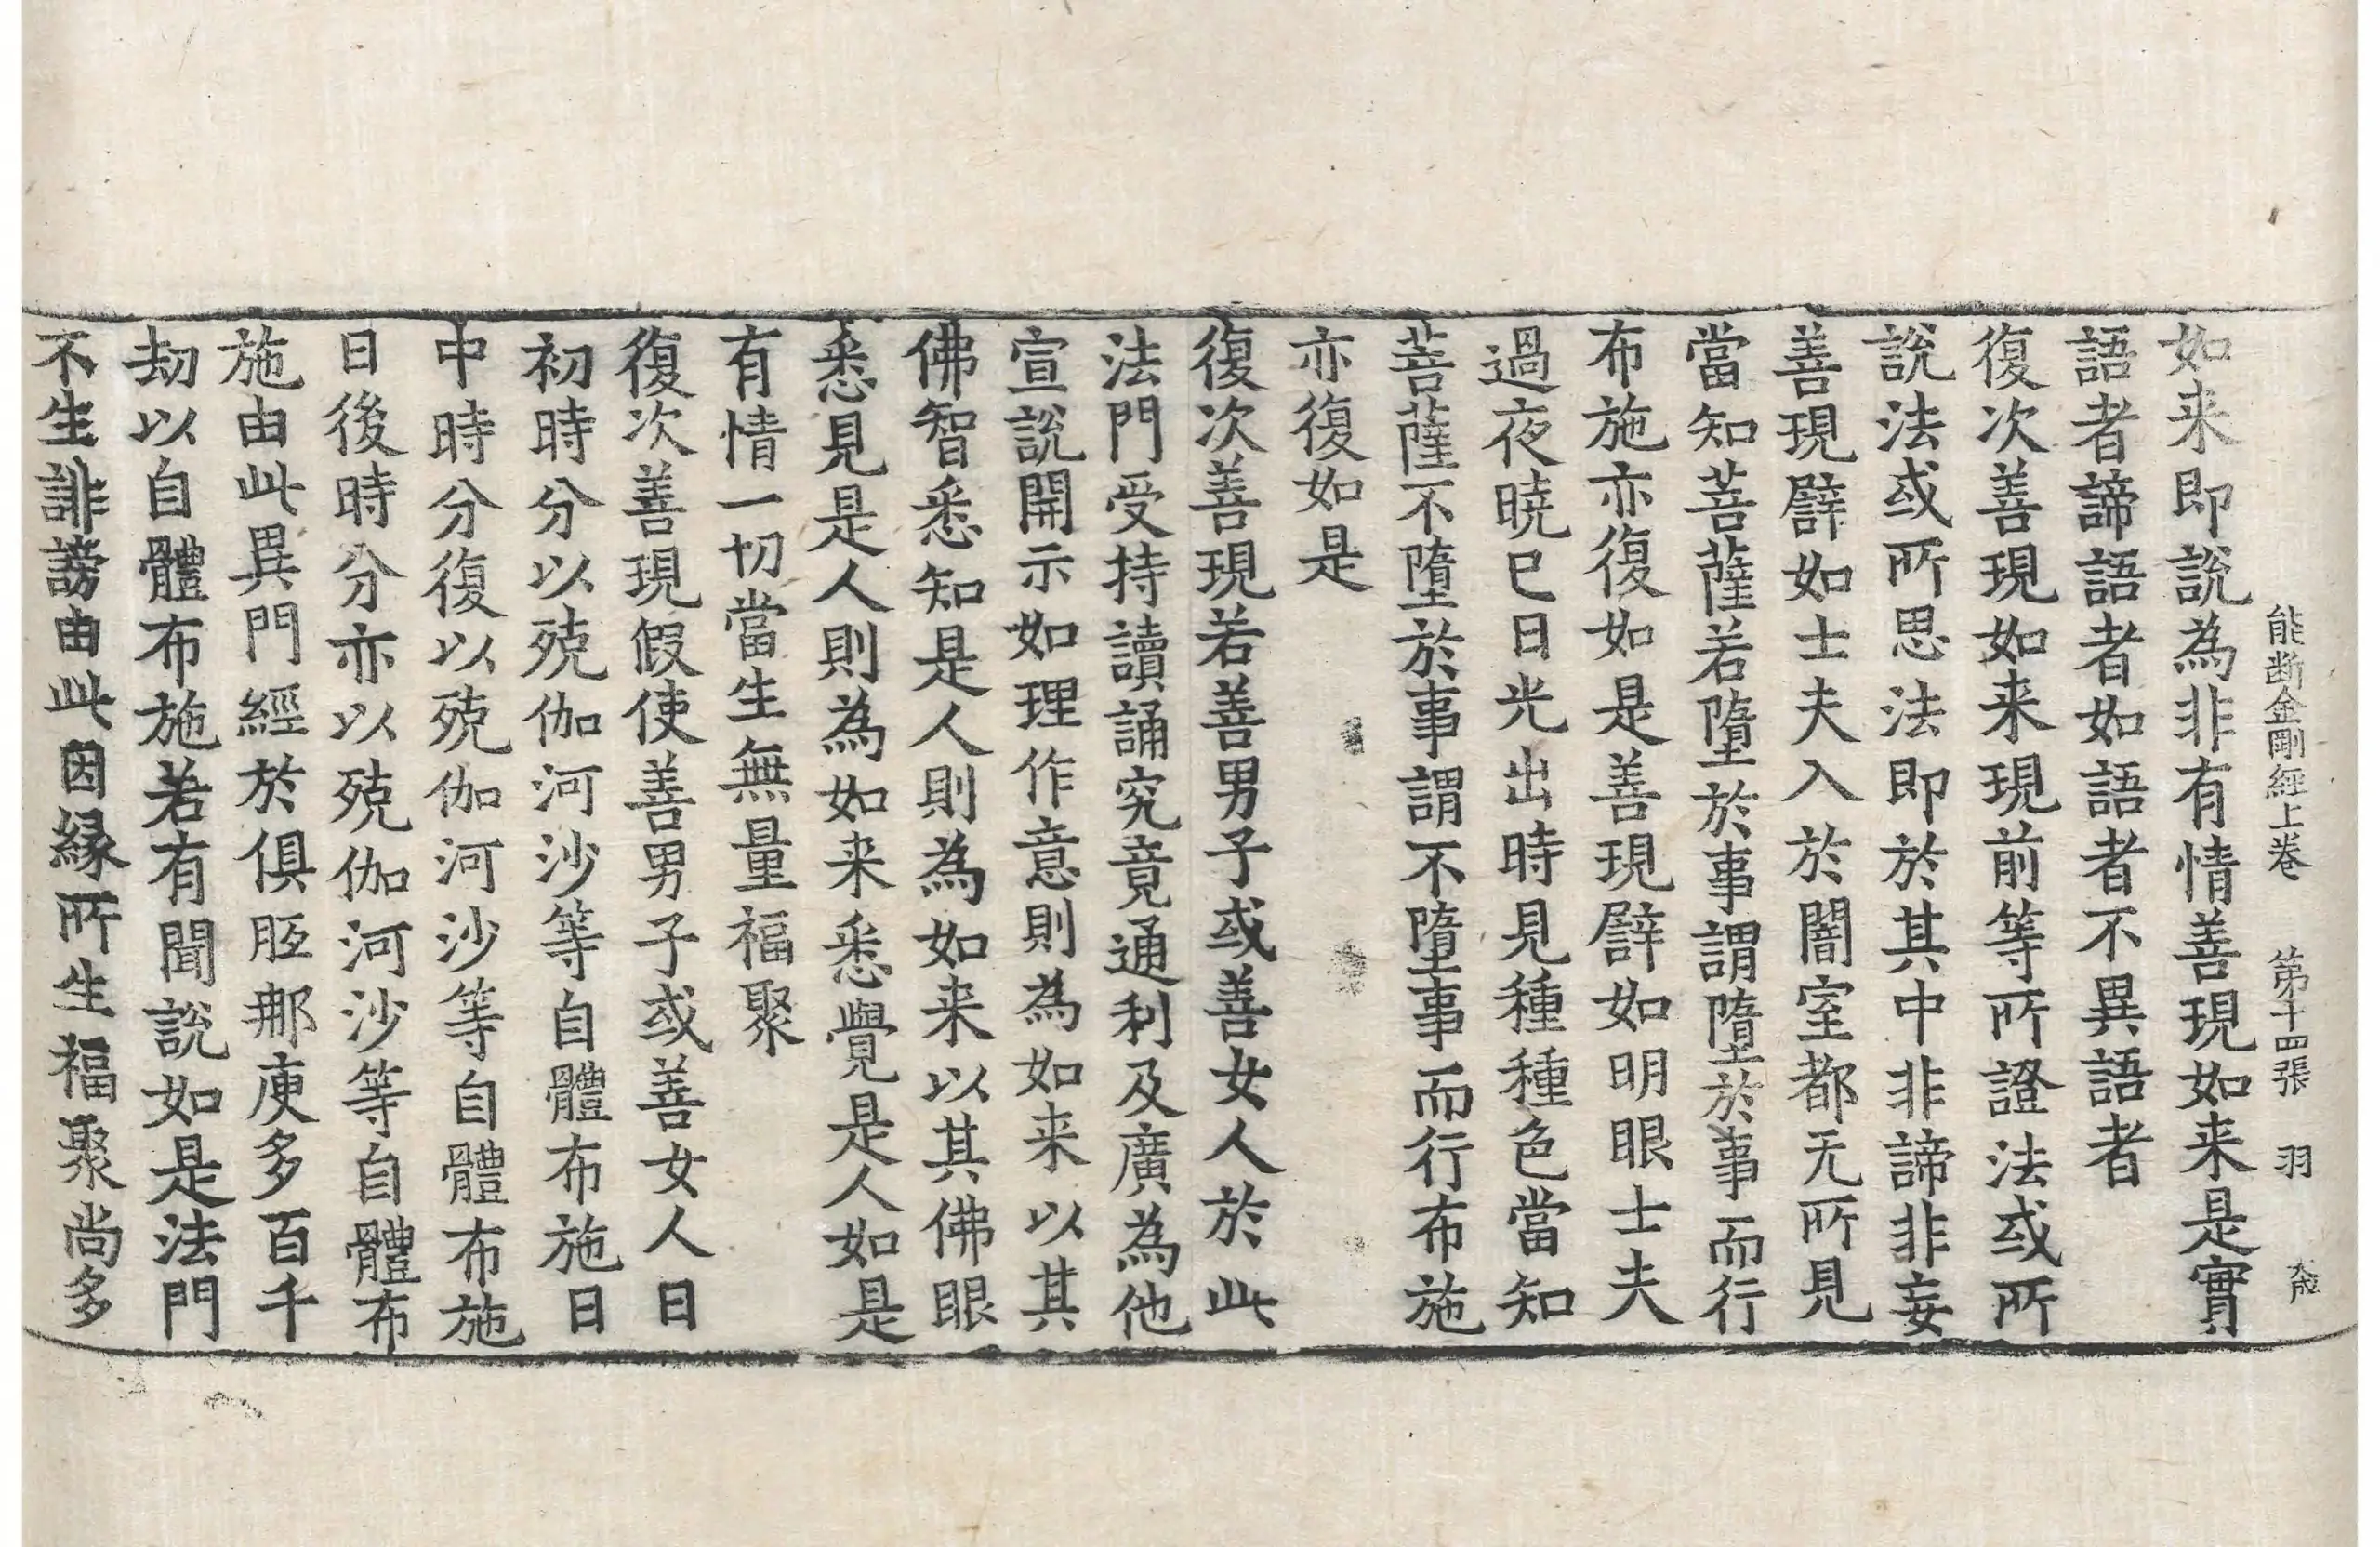 能断金剛經上卷　第十四張　羽
如来即說為非有情善現如来是實
語者諦語者如語者不異語者
復次善現如来現前等所證法或所
說法或所思法即於其中非諦非妄
善現譬如士夫入於闇室都无所見
當知菩薩若墮於事謂墮於事而行
布施亦復如是善現譬如明眼士夫
過夜曉已日光出時見種種色當知
菩薩不墮於事謂不墮事而行布施
亦復如是
復次善現若善男子或善女人於此
法門受持讀誦究竟通利及廣為他
宣說開示如理作意則為如来以其
佛智悉知是人則為如来以其佛眼
悉見是人則為如来悉覺是人如是
有情一切當生無量福聚
復次善現假使善男子或善女人日
初時分以殑伽河沙等自體布施日
中時分復以殑伽河沙等自體布施
日後時分亦以殑伽河沙等自體布
施由此異門經於俱胝那庾多百千
劫以自體布施若有聞說如是法門
不生誹謗由此因緣所生福聚尚多